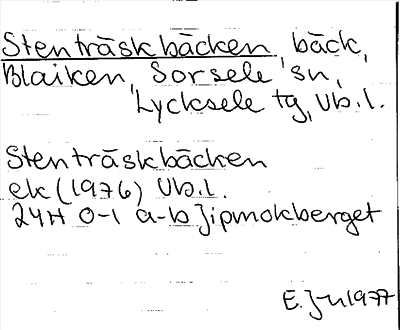 Stenträskbäcken, bäck,
Blaiken, Sorsele sn,
Lycksele tg, Vb.l.
Stenträskbäcken
ek (1976) Vb.l.
24H 0-1 a-b Jipmokberget
E. 1977